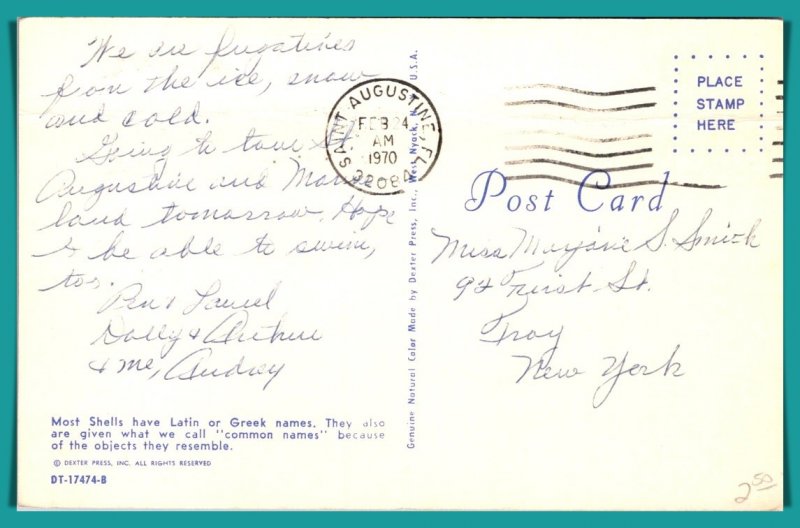 We are fugatives
from the ice, snow
and cold.
Going to tour St.
Augustine and Marine
land tomorrow. Hope
to be able to swim,
too.
Dolly & Arthur
& me, Audrey
Most Shells have Latin or Greek names. They also
are given what we call "common names" because
of the objects they resemble.
© DEXTER PRESS, INC. ALL RIGHTS RESERVED
DT-17474-B
Genuine Natural Color Made by Dexter Press, Inc., West Nyack, N.Y. U.S.A.
SAINT AUGUSTINE, FL
FEB 24
AM
1970
32084
PLACE
STAMP
HERE
Post Card
Miss Marjorie S. Smith
92 First St.
Troy
New York
2.50